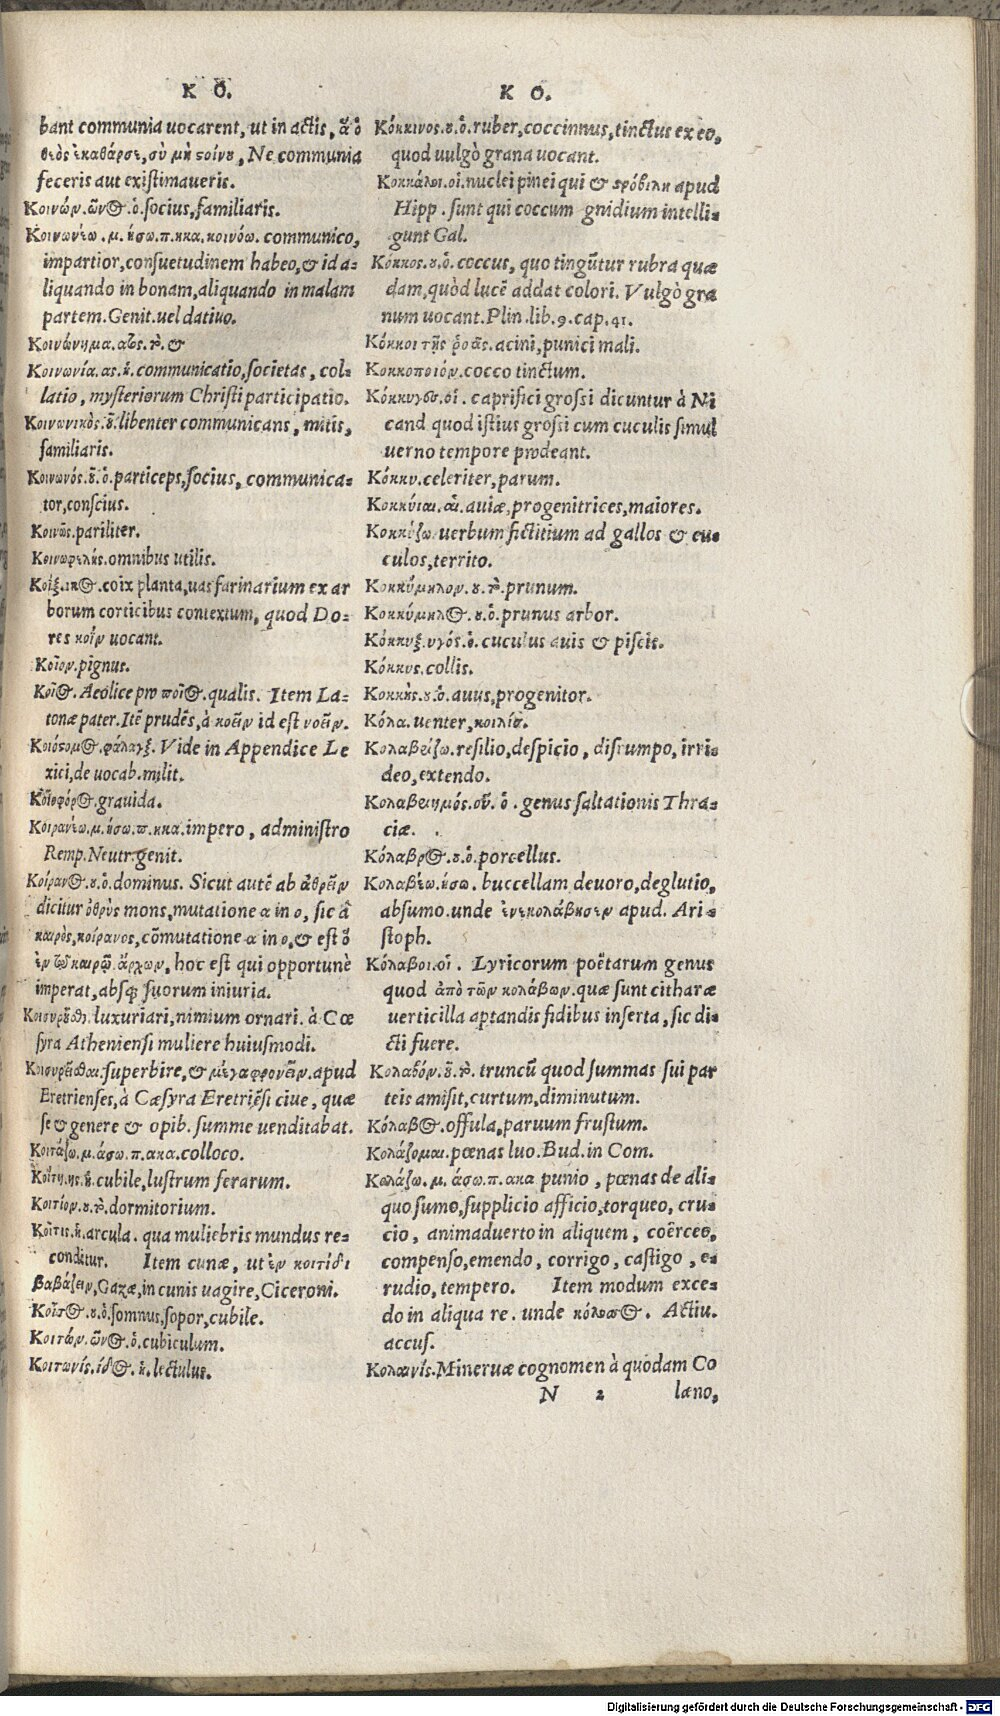 K O.
bant communia uocarent, ut in actis, ἃ ὁ
θεὸς ἐκαθάρισε, σὺ μὴ κοίνου, Ne communia
feceris aut existimaueris.
Κοινών.ῶνος.ὁ.socius,familiaris.
Κοινωνέω.μ.ήσω.π.ηκα.κοινόω.communico,
impartior,consuetudinem habeo,& id a-
liquando in bonam,aliquando in malam
partem.Genit.uel datiuo.
Κοινώνημα.ατος.τὸ.&
Κοινωνία.ας.ἡ.communicatio,societas, col-
latio, mysteriorum Christi participatio.
Κοινωνικὸς.οῦ.libenter communicans, mitis,
familiaris.
Κοινωνός.οῦ.ὁ.particeps,socius, communica-
tor,conscius.
Κοινῶς.pariliter.
Κοινωφελής.omnibus utilis.
Κοῖξ.ικος.coix planta,uas farinarium ex ar
borum corticibus contextum, quod Do-
res κοῒν uocant.
Κοῖον.pignus.
Κοῖος. Aeolice pro ποῖος.qualis. Item La-
tonæ pater.Itē prudēs,à κοεῖν id est νοεῖν.
Κοιόστομος.φάλαγξ. Vide in Appendice Le
xici,de uocab.milit.
Κοιοφόρος.grauida.
Κοιρανέω.μ.ήσω.π.ηκα.impero, administro
Remp.Neutr.genit.
Κοίρανος.ου.ὁ.dominus. Sicut autē ab ἀθρεῖν
dicitur ὀθρὺς mons,mutatione α in ο, sic à
καιρὸς,κοίρανος,cōmutatione α in ο,& est ὁ
ἐν τῷ καιρῷ ἄρχων, hoc est qui opportunè
imperat,absq; suorum iniuria.
luxuriari,nimium ornari. à Cœ
syra Atheniensi muliere huiusmodi.
Κοισυρεῖσθαι.superbire,& μεγαφρονεῖν.apud
Eretrienses,à Cæsyra Eretriēsi ciue, quæ
se & genere & opib. summe uenditabat.
Κοιτάζω.μ.άσω.π.ακα.colloco.
Κοίτη.ης.ἡ.cubile,lustrum ferarum.
Κοιτίον.ου.τὸ.dormitorium.
Κοῖτις.ἡ.arcula. qua muliebris mundus re-
conditur. Item cunæ, ut ἐν κοιτίδι
βαβάζειν, Gazæ, in cunis uagire,Ciceroni.
Κοῖτος.ου.ὁ.somnus,sopor,cubile.
Κοιτών.ῶνος.ὁ.cubiculum.
Κοιτωνίς.ίδος.ἡ.lectulus.
K O.
Κόκκινος.ου.ὁ.ruber,coccinnus,tinctus ex eo,
quod uulgò grana uocant.
Κοκκάλοι.οἱ.nuclei pinei qui & στρόβιλη apud
Hipp. sunt qui coccum gnidium intelli-
gunt Gal.
Κόκκος.ου.ὁ. coccus, quo tingūtur rubra quæ
dam,quòd lucē addat colori. Vulgò gra
num uocant.Plin.lib.9.cap.41.
Κόκκοι τῆς ῥοᾶς.acini,punici mali.
Κοκκοποιόν.cocco tinctum.
Κόκκυγες.οἱ. caprifici grossi dicuntur à Ni
cand quod istius grossi cum cuculis simul
uerno tempore prodeant.
Κόκκυ.celeriter,parum.
Κοκκύιαι.αἱ.auiæ,progenitrices,maiores.
Κοκκύζω. uerbum fictitium ad gallos & cu-
culos,territo.
Κοκκύμηλον.ου.τὸ.prunum.
Κοκκύμηλος.ου.ὁ.prunus arbor.
Κόκκυξ.υγός.ὁ.cuculus auis & piscis.
Κόκκυς.collis.
Κοκκὴς.ου.ὁ.auus,progenitor.
Κόλα. uenter, κοιλία.
Κολαβρίζω.resilio,despicio, disrumpo, irri-
deo,extendo.
Κολαβρισμός.οῦ. ὁ.genus saltationis Thra-
ciæ.
Κόλαβρος.ου.ὁ.porcellus.
Κολαβέω.ήσω. buccellam deuoro,deglutio,
absumo.unde ἐνεκολάβησεν apud. Ari-
stoph.
Κόλαβοι.οἱ. Lyricorum poëtarum genus
quod ἀπὸ τῶν κολάβων.quæ sunt citharæ
uerticilla aptandis fidibus inserta, sic di-
cti fuere.
Κολαβόν.οῦ.τὸ.truncū quod summas sui par
teis amisit,curtum,diminutum.
Κόλαβος.offula,paruum frustum.
Κολάζομαι.pœnas luo.Bud.in Com.
Κολάζω.μ.άσω.π.ακα punio, pœnas de ali-
quo sumo,supplicio afficio,torqueo, cru-
cio, animaduerto in aliquem, coërceo,
compenso,emendo, corrigo, castigo, e-
rudio, tempero. Item modum exce-
do in aliqua re. unde κόλασος. Actiu.
accus.
Κολαινίς.Mineruæ cognomen à quodam Co
N 2 læno,
Digitalisierung gefördert durch die Deutsche Forschungsgemeinschaft - DFG